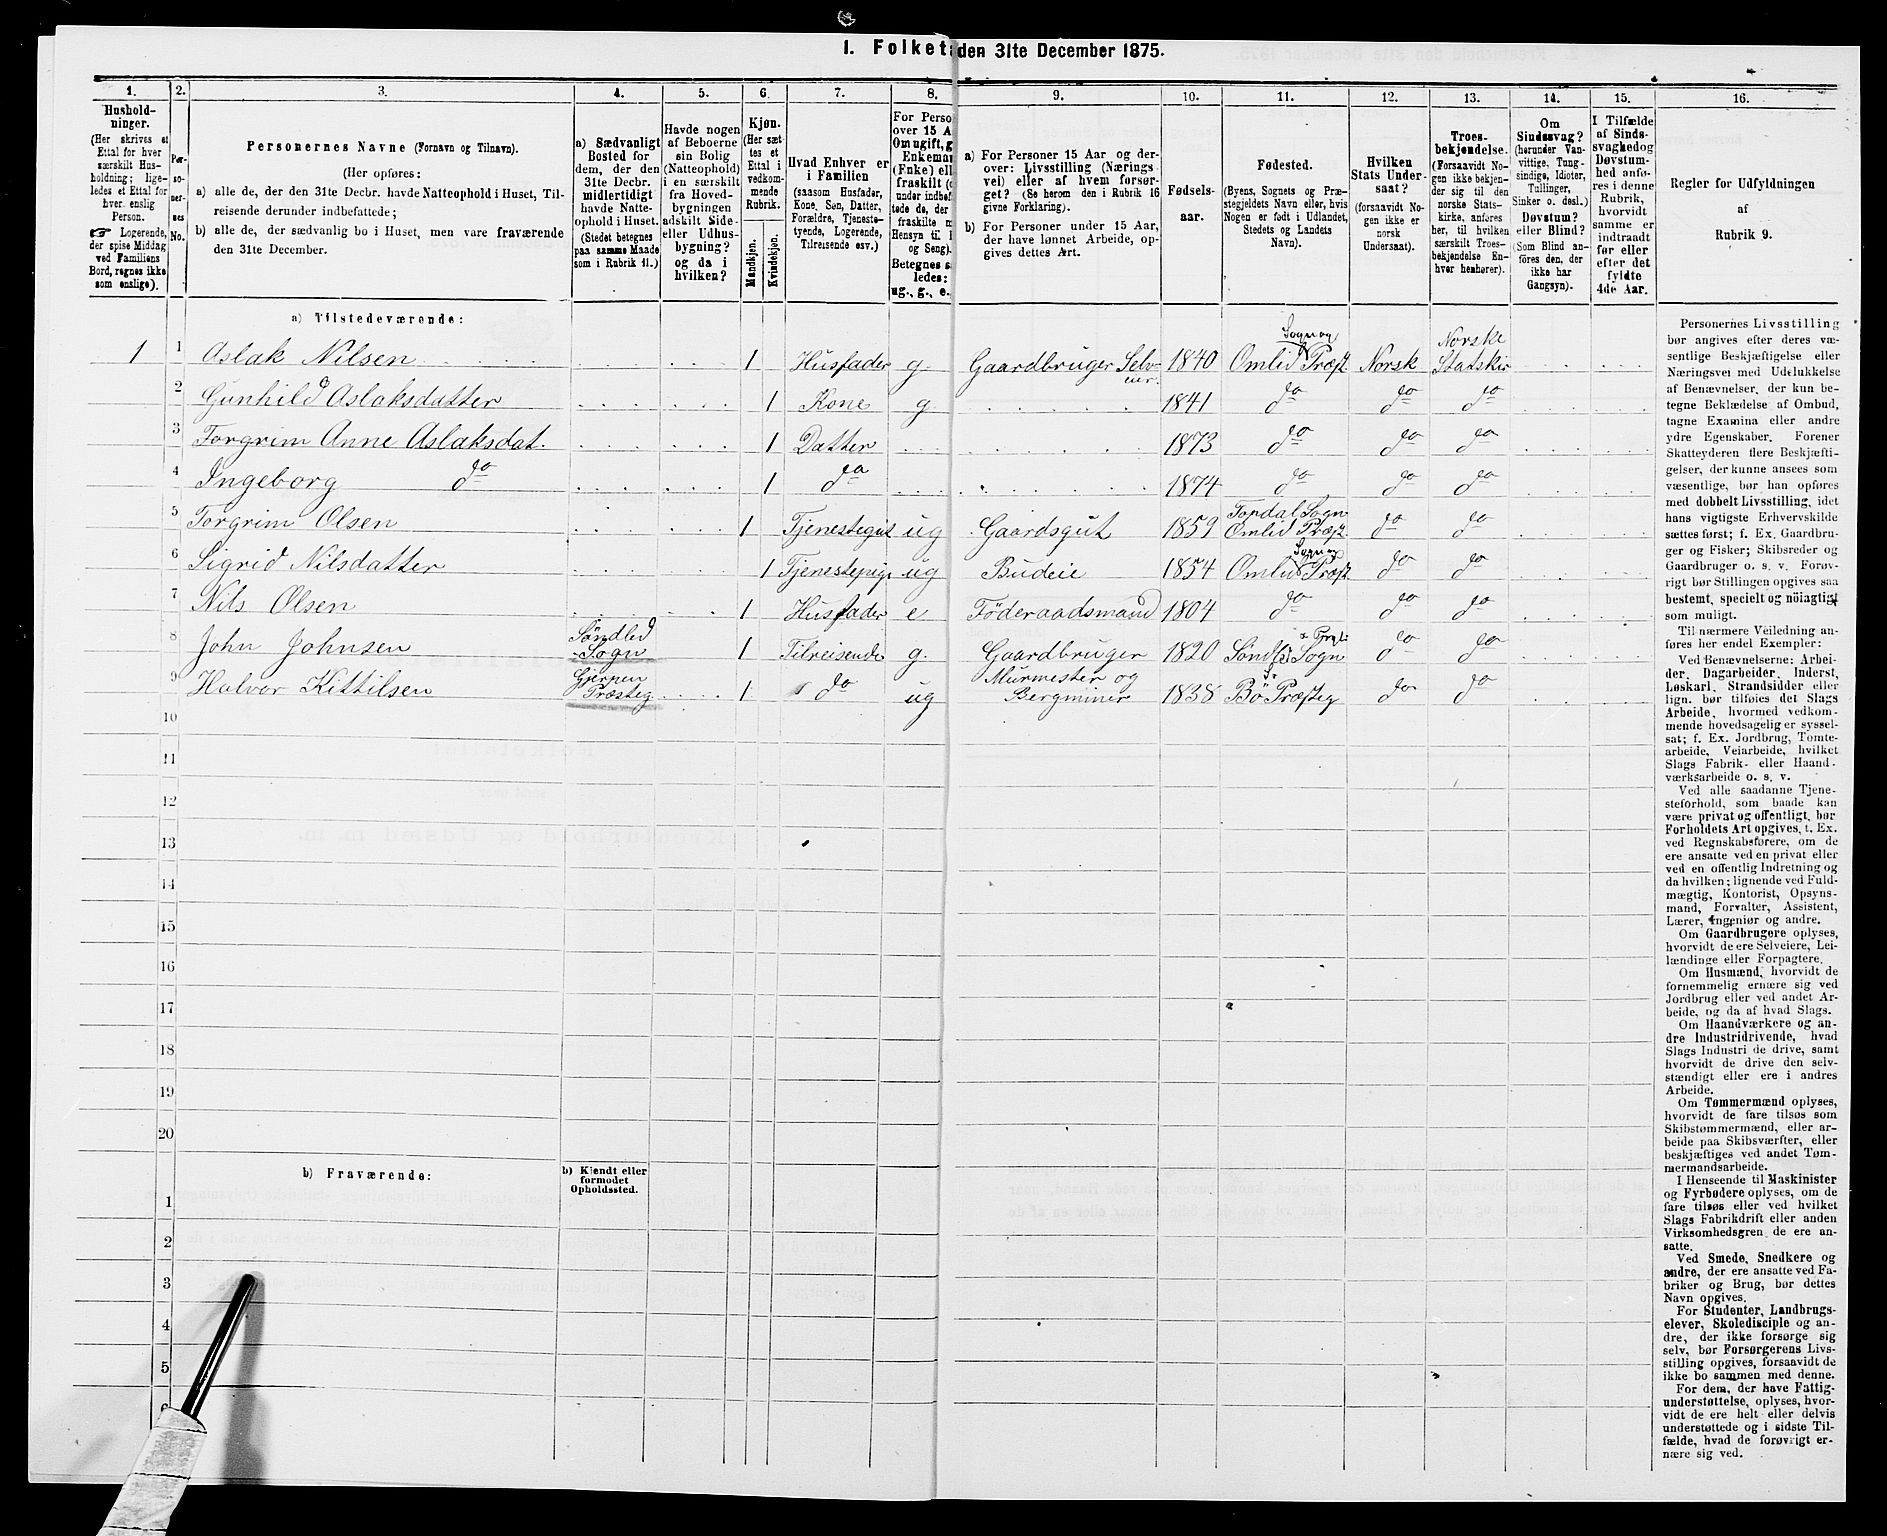 1. Folket den 31te December 1875.
1.
2.
3.
4.
5.
6.
7.
8.
9.
10.
11.
12.
13.
14.
15.
16.
Hushold-
ninger.
(Her skrives et
Ettal for hver
særskilt Hus-
holdning; lige-
ledes et Ettal for
hver enslig
Person.
☞ Logerende,
der spise Middag
ved Familiens
Bord, regnes ikke
som enslige).
Per-
so-
ner-
nes
No.
Personernes Navne (Fornavn og Tilnavn).
(Her opføres:
a) alle de, der den 31te Decbr. havde Natteophold i Huset, Til-
reisende derunder indbefattede;
b) alle de, der sædvanlig bo i Huset, men vare fraværende
den 31te December.
a) Sædvanligt
Bosted for
dem, der den
31te Decbr.
midlertidigt
havde Natte-
ophold i Huset.
(Stedet betegnes
paa samme Maade
som i Rubrik 11.)
Havde nogen
af Beboerne
sin Bolig
(Natteophold)
i en særskilt
fra Hoved-
bygningen
adskilt Side-
eller Udhus-
bygning?
og da i
hvilken?
Kjøn.
(Her sæt-
tes et
Ettal i
vedkom-
mende
Rubrik.
Mandkjøn.
Kvindekjøn.
Hvad Enhver er
i Familien
(saasom Husfader,
Kone, Søn, Datter,
Forældre, Tjeneste-
tyende, Logerende,
Tilreisende osv.)
For Perso
over 15 A
Om ugift, g
Enkema
(Enke) ell
fraskilt (
under indbef
tede de, der
fraskilte m
Hensyn til
og Seng).
Betegnes s
ledes:
ug., g., e.
a) For Personer 15 Aar og der-
over: Livsstilling (Nærings
vei) eller af hvem forsør-
get? (Se herom den i Rubrik 16
givne Forklaring).
b) For Personer under 15 Aar,
der have lønnet Arbeide, op-
gives dettes Art.
Fødsels-
aar.
Fødested.
(Byens, Sognets og Præ-
stegjeldets Navn eller, hvis
Nogen er født i Udlandet,
Stedets og Landets
Navn).
Hvilken
Stats Under-
saat?
(forsaavidt No-
gen ikke er
norsk
Undersaat).
Troes-
bekjendelse.
(Forsaavidt No-
gen ikke bekjen-
der sig til den
norske Stats-
kirke, anføres
her, til hvilken
særskilt Troes-
bekjendelse En-
hver henhører).
Om
Sindssvag?
(herunder Van-
vittige, Tung-
sindige, Idioter,
Tullinger,
Sinker o. desl.)
Døvstum?
eller Blind?
(Som Blind an-
føres den, der
ikke har
Gangsyn).
I Tilfælde
af Sinds-
svaghed og
Døvstum-
hed anfø-
res i denne
Rubrik,
hvorvidt
samme er
indtraadt
før eller
efter det
fyldte
4de Aar.
Regler for Udfyldningen
af
Rubrik 9.
a) Tilstedeværende:
1 1 Aslak Nilsen 1 Husfader g. Gaardbruger Selv-eier. 1840 Omlid Sogn og Præst. Norsk Norske Statskir
2 Gunhild Aslaksdatter 1 Kone g 1841 do do do
3 Torgrim Anne Aslaksdat. 1 Datter 1873 do do do
4 Ingeborg do 1 do 1874 do do do
5 Torgrim Olsen 1 Tjenestegut ug Gaardsgut 1859 Topdal Sogn Omlid Præst. do do
6 Sigrid Nilsdatter 1 Tjenestepige ug Budeie 1854 Omlid Sogn og Præst. do do
7 Nils Olsen 1 Husfader e Föderaadsmand 1804 do do do
8 John Johnsen Söndled Sogn 1 Tilreisende g. Gaardbruger 1820 Sogn do do
9 Halvor Kittilsen Gjerpen Præsteg 1 do ug Murmester og Bergminer 1838 Bö Præsteg do do
10
11
12
13
14
15
16
17
18
19
20
b) Fraværende:
b) Kjendt eller
formodet
Opholdssted.
1
2
3
4
5
6
Personernes Livsstilling
bør angives efter deres væ-
sentlige Beskjæftigelse eller
Næringsvei med Udelukkelse
af Benævnelser, der kun be-
tegne Beklædelse af Ombud,
tagne Examina eller andre
ydre Egenskaber. Forener
Skatteyderen flere Beskjæfti-
gelser, der kunne ansees som
væsentlige, bør han opføres
med dobbelt Livsstilling, idet
hans vigtigste Erhvervskilde
sættes først; f. Ex. Gaardbru-
ger og Fisker; Skibsreder og
Gaardbruger o. s. v. Forøv-
rigt bør Stillingen opgives saa
bestemt, specielt og nöiagtigt
som muligt.
Til nærmere Veiledning an-
føres her endel Exempler:
Ved Benævnelserne: Arbei-
der, Dagarbeider, Inderst,
Løskarl, Strandsidder eller
lign. bør tilføies det Slags
Arbeide, hvormed vedkom-
mende hovedsagelig er syssel-
sat; f. Ex. Jordbrug, Tomte-
arbeide, Veiarbeide, hvilket
Slags Fabrik- eller Haand-
værksarbeide o. s. v.
Ved alle saadanne Tjene-
steforhold, som baade kan
være privat og offentligt, bør
Forholdets Art opgives, t. Ex.
ved Regnskabsførere, om de
ere ansatte ved en privat eller
ved en offentlig Indretning og
da hvilken; lignende ved Fuld-
mægtig, Kontorist, Opsyns-
mand, Forvalter, Assistent,
Lærer, Ingeniør og andre.
Om Gaardbrugere oplyses,
hvorvidt de ere Selveiere, Lei-
lændinge eller Forpagtere.
Om Husmænd, hvorvidt de
fornemmelig ernære sig ved
Jordbrug eller ved andet Ar-
beide, og da af hvad Slags.
Om Haandværkere og an-
dre Industridrivende, hvad
Slags Industri de drive, samt
hvorvidt de drive den selv-
stændigt eller ere i andres
Arbeide.
Om Tømmermænd oplyses,
hvorvidt de fare tilsøs som
Skibstømmermænd, eller ar-
beide paa Skibsværfter, eller
beskjæftiges ved andet Tøm-
mermandsarbeide.
I Henseende til Maskinister
og Fyrbødere oplyses, om de
fare tilsøs eller ved hvilket
Slags Fabrikdrift eller anden
Virksomhedsgren de ere an-
satte.
Ved Smede, Snedkere og
andre, der ere ansatte ved Fa-
briker og Brug, bør dettes
Navn opgives.
For Studenter, Landbrugs-
elever, Skoledisciple og an-
dre, der ikke forsørge sig
selv, bør Forsørgerens Livs-
stilling opgives, forsaavidt de
ikke bo sammen med denne.
For dem, der have Fattig-
understøttelse, oplyses, hvor-
vidt de ere helt eller delvis
understøttede og i sidste Til-
fælde, hvad de forøvrigt er-
nære sig ved.